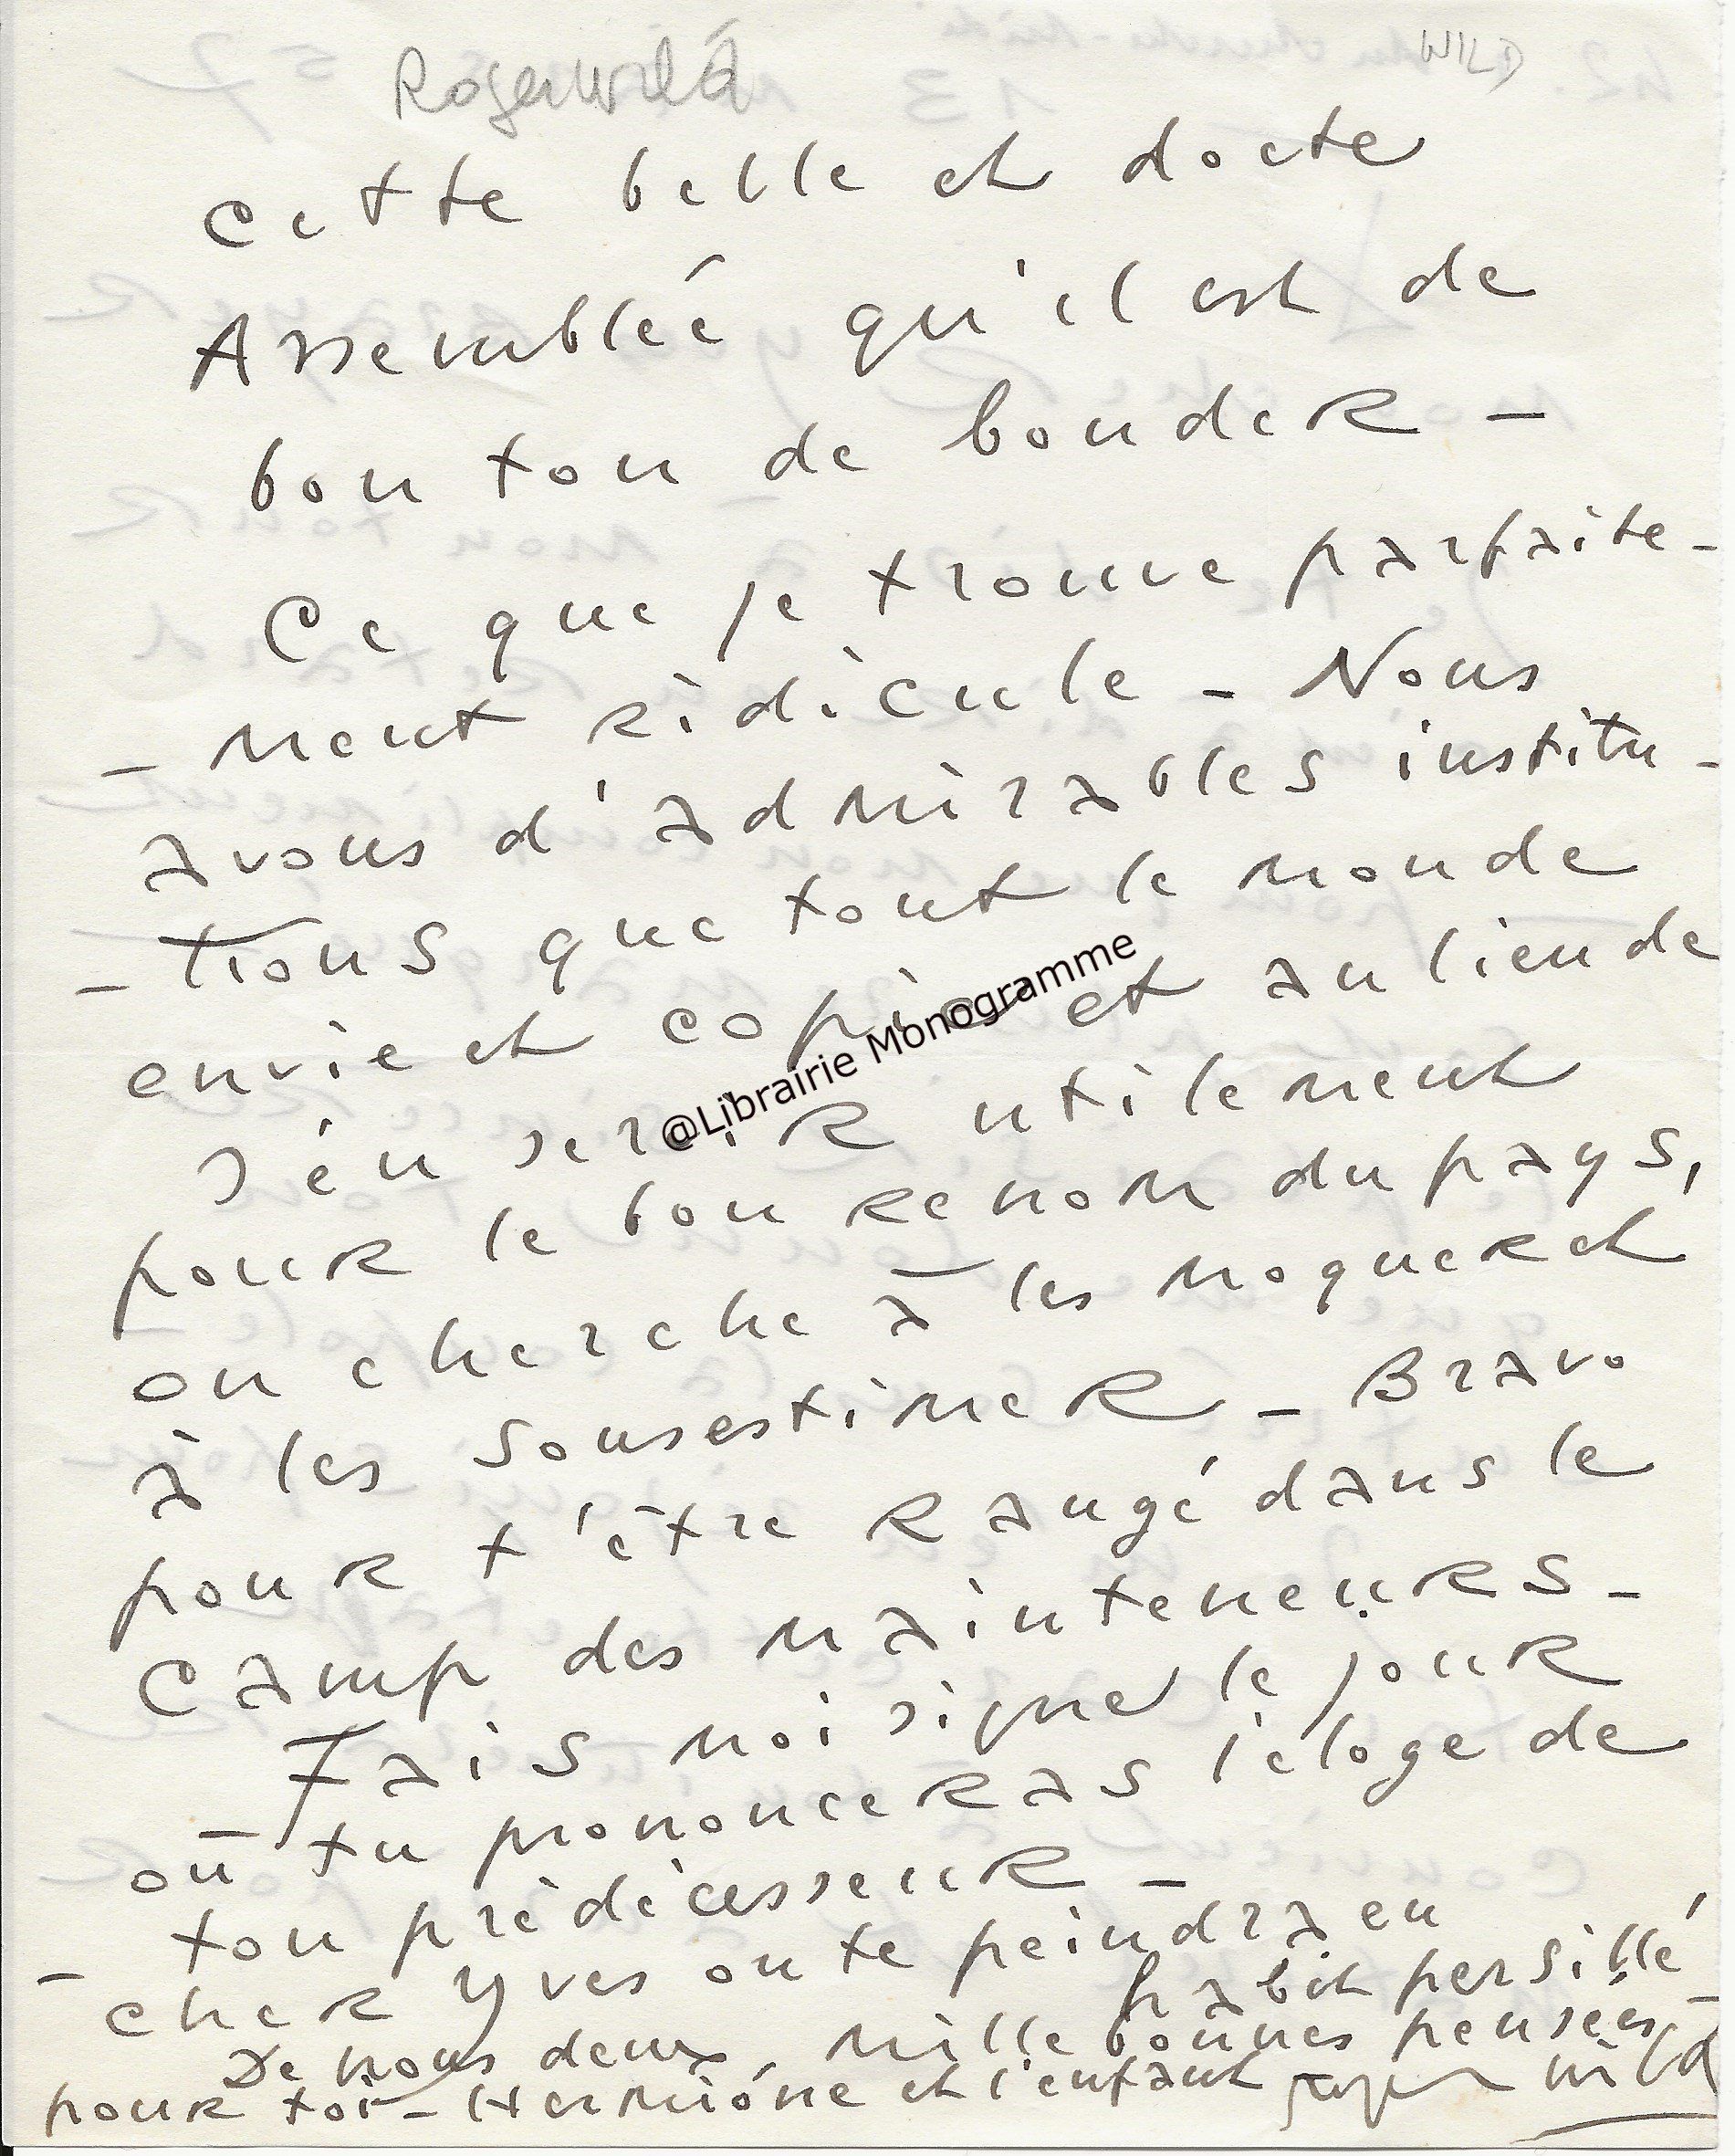 Roger Wild
WILD
Cette belle et docte
Assemblée qu'il est de
bon ton de bouder -
Ce que je trouve parfaite-
- ment ridicule - Nous
avons d'admirables institu-
- tions que tout le monde
envie et copie et au lieu de
s'en servir utilement
pour le bon renom du pays,
on cherche à les moquer et
à les sousestimer - Bravo
pour t'être rangé dans le
camp des mainteneurs -
Fais moi signe le jour
où tu prononceras l'éloge de
ton prédécesseur -
- cher Yves on te peindra en
habit persillé
De nous deux, mille bonnes pensées -
pour toi - Hermione et l'enfant Roger Wild
@Librairie Monogramme